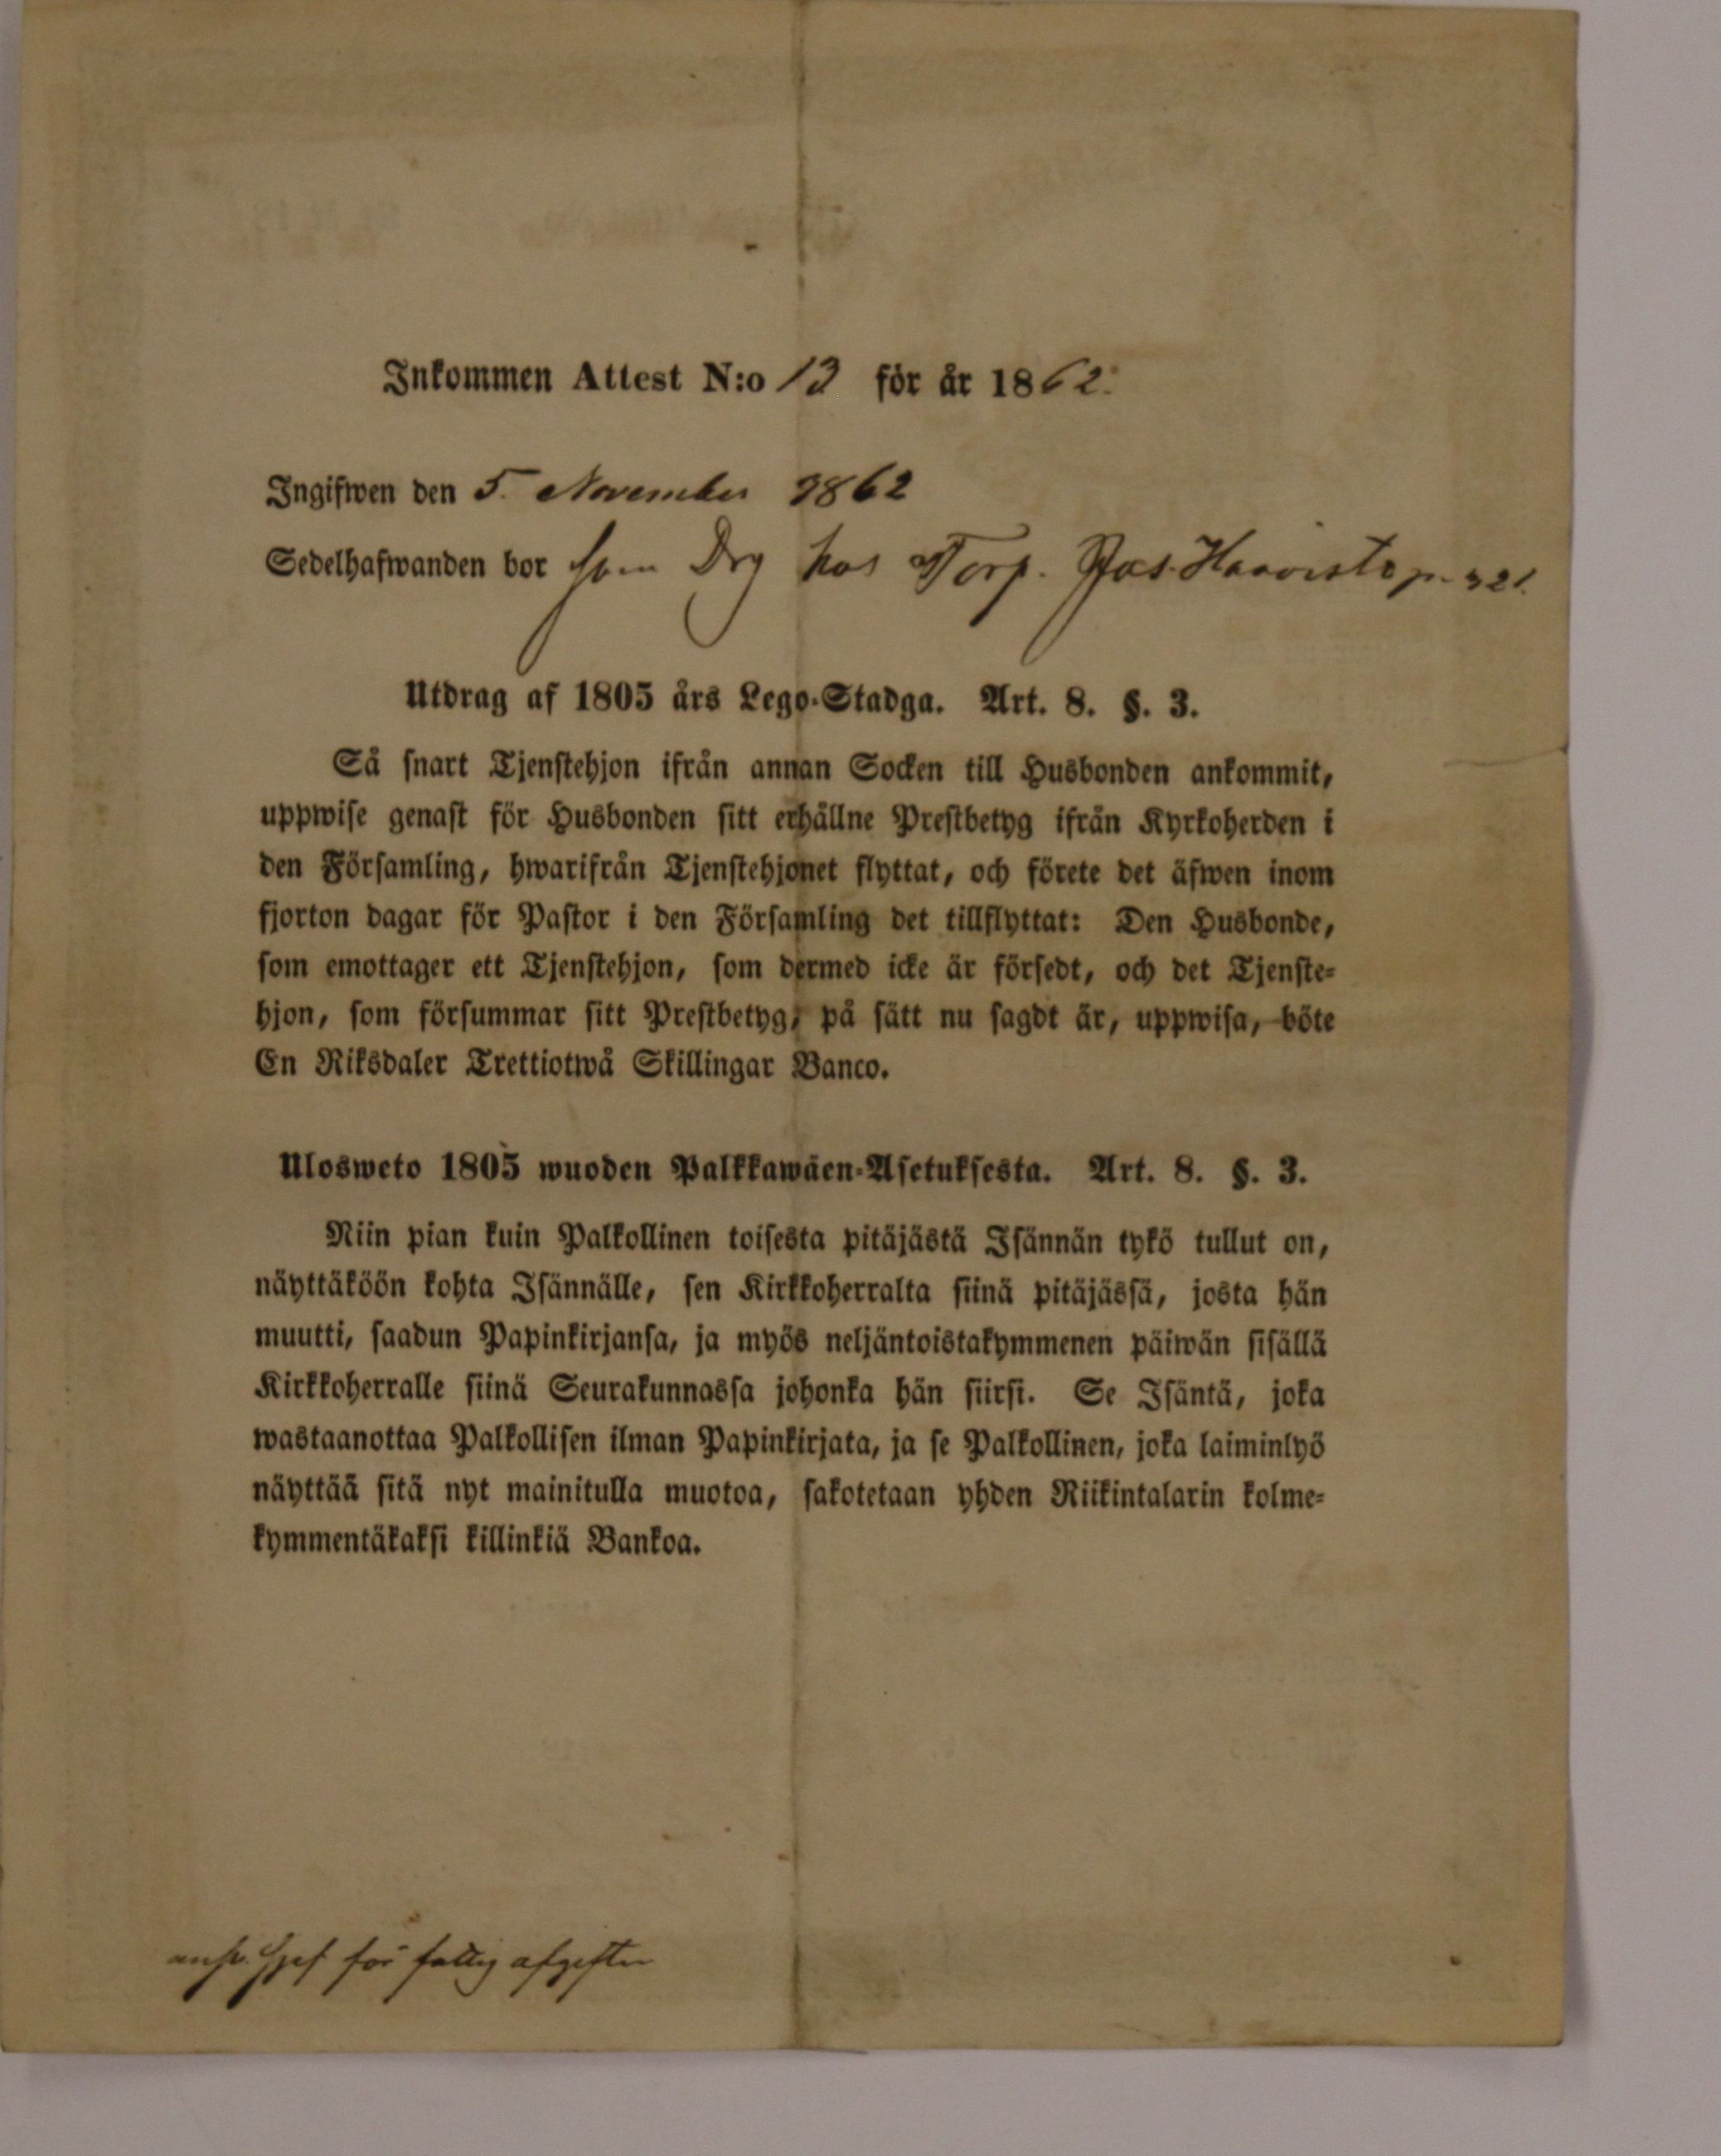 Inkommen Attest N:o 13 för år 1862.
Ingifwen den 5. November 1862
Sedelhafwanden bor som Drg hos Torp. Haavisto p. 321.
Utdrag af 1805 års Lego-Stadga. Art. 8. §. 3.
Så snart Tjenstehjon ifrån annan Socken till Husbonden ankommit,
uppwise genast för Husbonden sitt erhållne Prestbetyg ifrån Kyrkoherden i
den Församling, hwarifrån Tjenstehjonet flyttat, och förete det äfwen inom
fjorton dagar för Pastor i den Församling det tillflyttat: Den Husbonde,
som emottager ett Tjenstehjon, som dermed icke är försedt, och det Tjenste-
hjon, som försummar sitt Prestbetyg, på sätt nu sagdt är, uppwisa, böte
En Riksdaler Trettiotwå Skillingar Banco.
Ulosweto 1805 wuoden Palkkawäen-Asetuksesta. Art. 8. §. 3.
Niin pian kuin Palkollinen toisesta pitäjästä Isännän tykö tullut on,
näyttäköön kohta Isännälle, sen Kirkkoherralta siinä pitäjässä, josta hän
muutti, saadun Papinkirjansa, ja myös neljäntoistakymmenen päiwän sisällä
Kirkkoherralle siinä Seurakunnassa johonka hän siirsi. Se Isäntä, joka
wastaanottaa Palkollisen ilman Papinkirjata, ja se Palkollinen, joka laiminlyö
näyttää sitä nyt mainitulla muotoa, sakotetaan yhden Riikintalarin kolme-
kymmentäkaksi killinkiä Bankoa.
för fattig afgifter